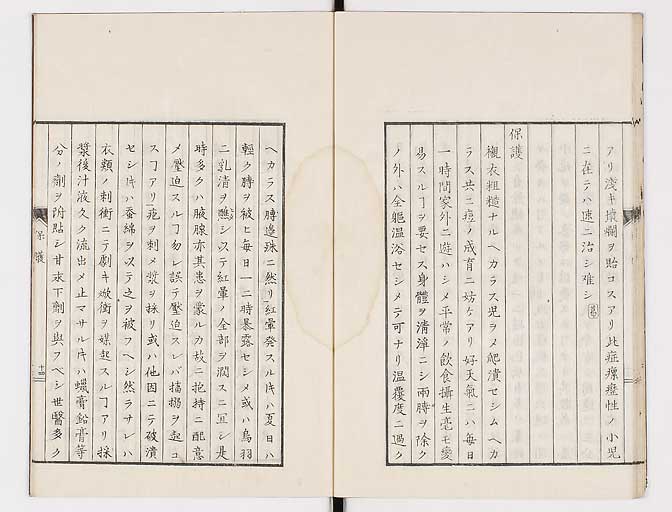 アリ淺キ壊爛ヲ貽コスアリ此症瘰癧性ノ小児
ニ在テハ速ニ治シ難シ
保護
襯衣粗糙ナルヘカラス児ヲメ爬潰セシムヘカ
ラス共ニ痘ノ成育ニ妨ケアリ好天氣ニハ毎日
一時間家外ニ遊ハシメ平常ノ飲食攝生毫モ變
易スルヿヲ要セス身體ヲ清淨ニシ兩膊ヲ除ク
ノ外ハ全軀温浴セシメテ可ナリ温覆度ニ過ク
ヘカラス膊邊殊ニ然リ紅暈発スル片ハ夏日ハ
輕ク膊ヲ被ヒ毎日一二時暴露セシメ或ハ鳥羽
ニ乳清ヲ蘸シ以テ紅暈ノ全部ヲ潤スニ冝シ是
時多クハ腋腺亦其患ヲ蒙ルカ故ニ抱持ニ配意
メ壓迫スルヿ勿レ誤テ壓迫スレバ搐搦ヲ起コ
スヿアリ疱ヲ刺メ漿ヲ採リ或ハ他因ニテ破潰
セシ片ハ蚕綿ヲ以テ之ヲ被フヘシ然ラサレハ
衣類ノ刺衝ニテ劇キ焮衝ヲ媒起スルヿアリ採
漿後汁液久ク流出メ止マサル片ハ蠟膏鉛膏等
分ノ劑ヲ貼シ甘汞下劑ヲ與フヘシ世醫多ク
保護
十四